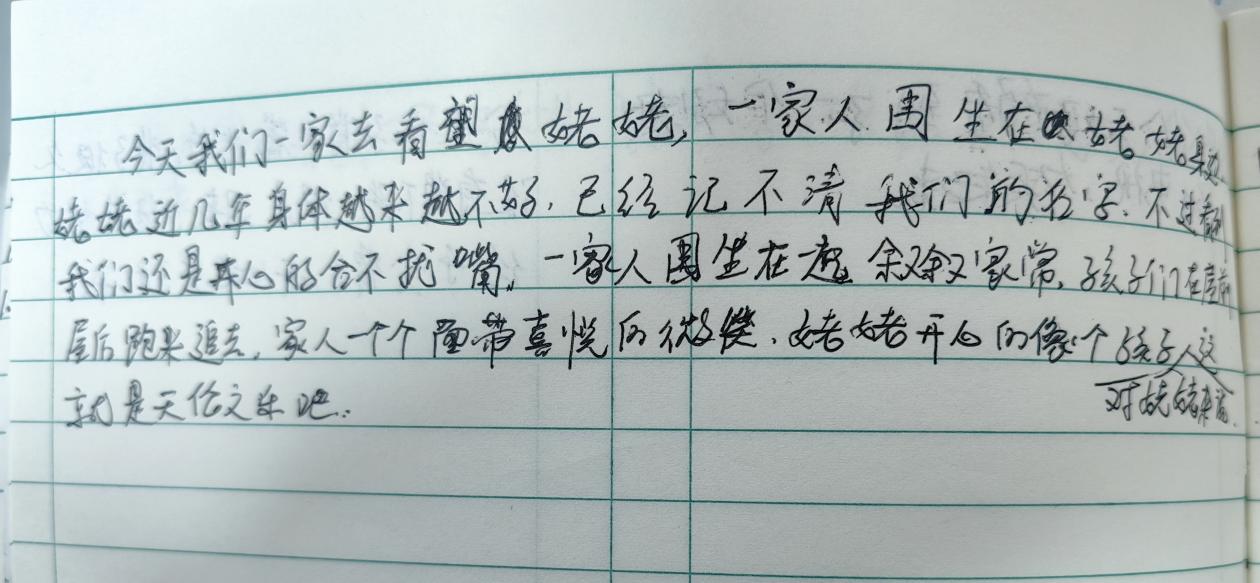 今天我们一家去看望姥姥，一家人围坐在姥姥身边
姥姥近几年身体越来越不好，已经记不清我们的名字，不过看到
我们还是开心的合不拢嘴，一家人围坐在一起余叙家常，孩子们在屋前
屋后跑来追去，家人一个个面带喜悦的微笑，姥姥开心的像个孩子，这
对姥姥来说
就是天伦之乐吧.